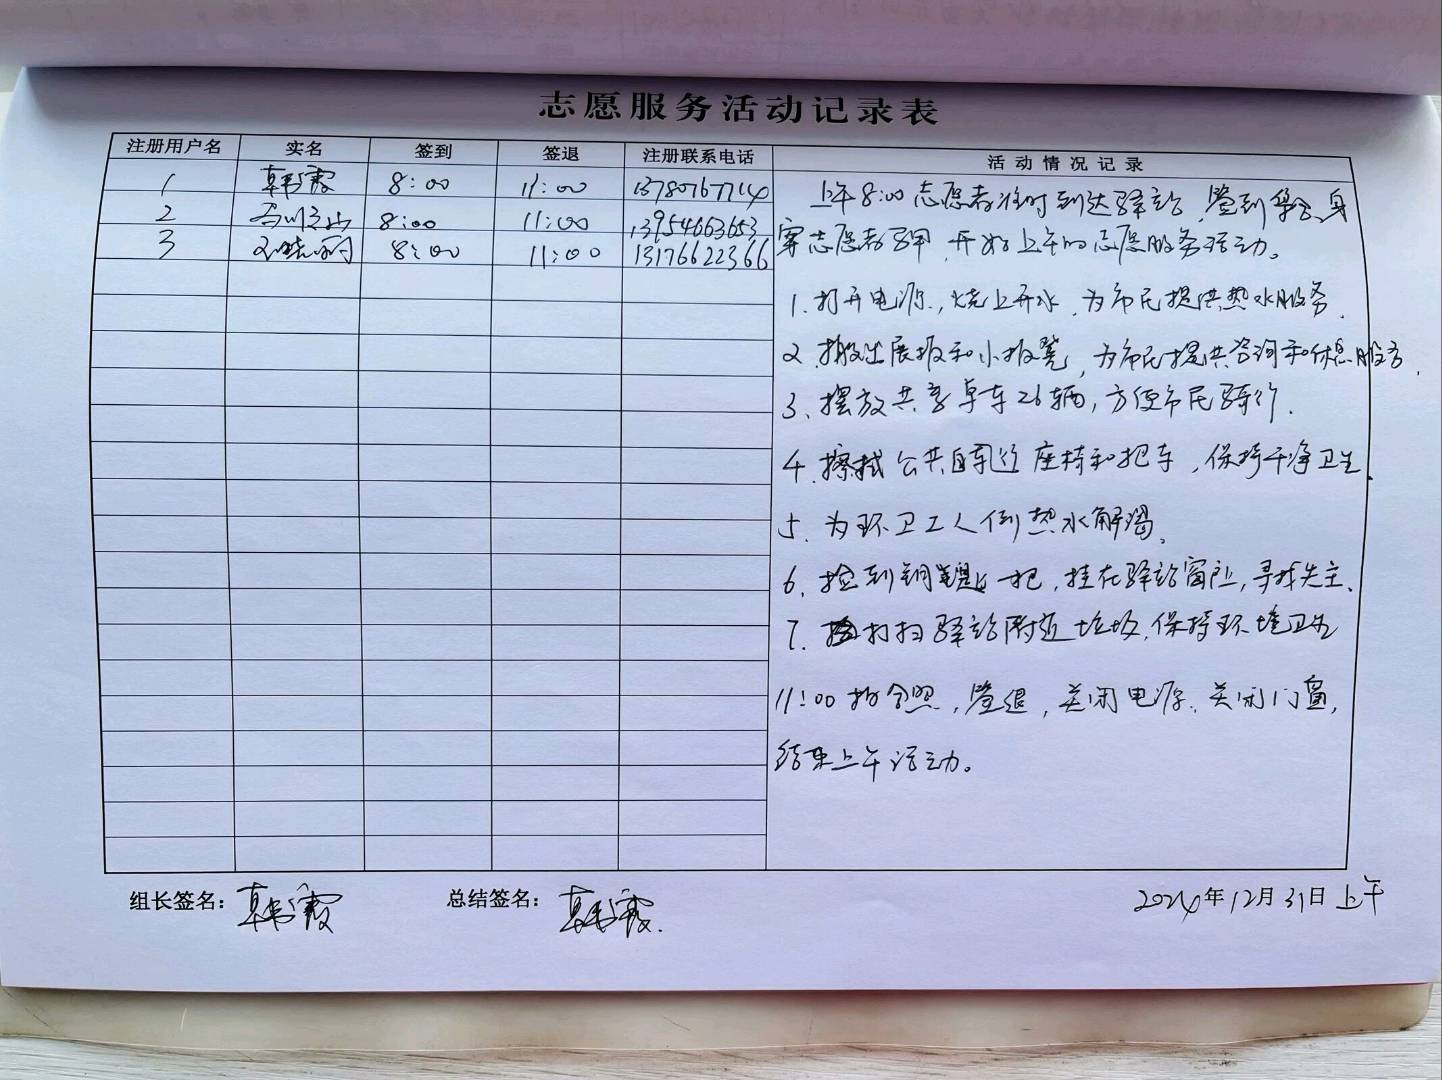 志愿服务活动记录表
注册用户名 实名 签到 签退 注册联系电话 活动情况记录
1 韩霞 8:00 11:00 13780767714
2 8:00 11:00 13954663653
3 刘晓丽 8:00 11:00 13176622366
上午8:00志愿者准时到达驿站,签到集合,身
穿志愿者马甲,开始上午的志愿服务活动。
1、打开电源,烧上开水,为市民提供热水服务.
2、搬出展板和小板凳,为市民提供咨询和休息服务.
3、摆放共享单车26辆,方便市民骑行.
4、擦拭公共自行车座椅和把手,保持干净卫生.
5、为环卫工人倒热水解渴.
6、捡到钥匙一把,挂在驿站窗外,寻找失主.
7、打扫驿站附近垃圾,保持环境卫生
11:00拍合照,签退,关闭电源.关闭门窗,
结束上午活动。
组长签名:韩霞 总结签名:韩霞. 2024年12月31日上午